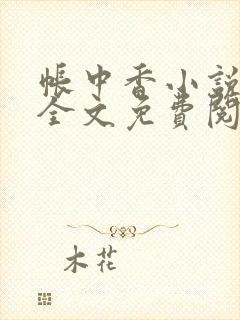 帳中香小説
全文免費閱
木花